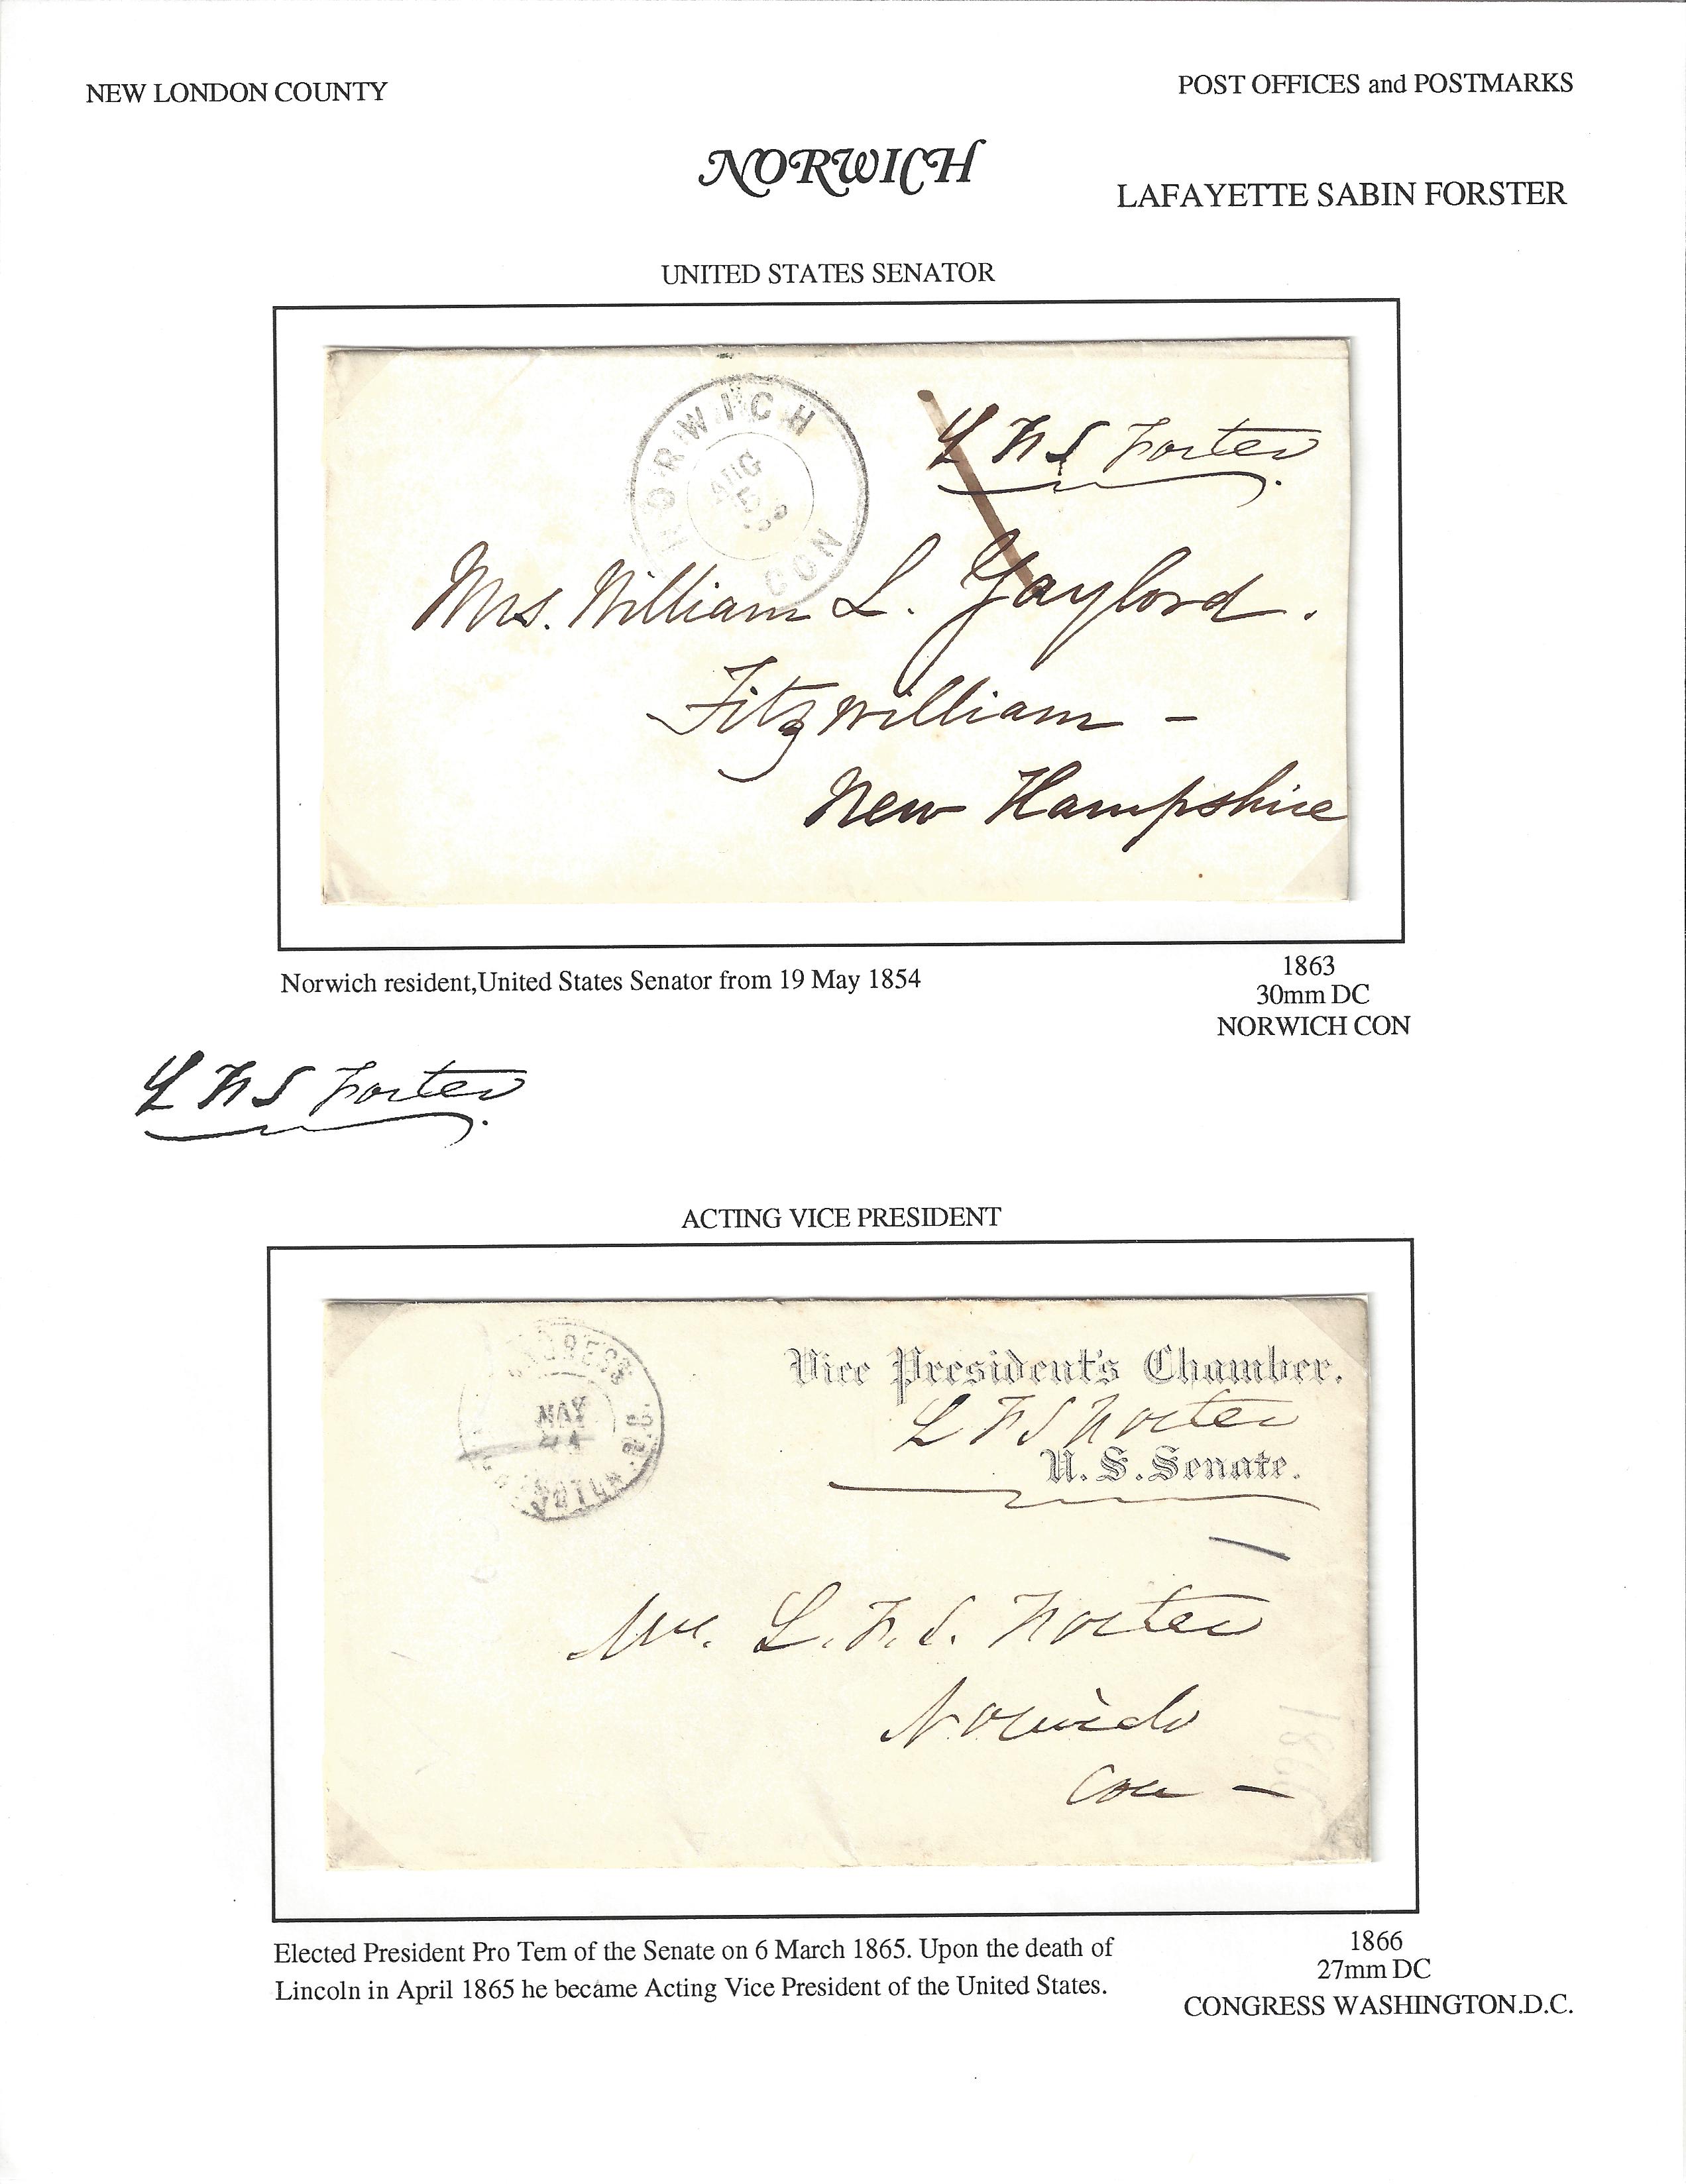 NEW LONDON COUNTY
POST OFFICES and POSTMARKS
NORWICH
LAFAYETTE SABIN FORSTER
UNITED STATES SENATOR
NORWICH
AUG
5
CON
L F S Foster
Mrs. William L. Gaylord.
Fitzwilliam -
New Hampshire
Norwich resident,United States Senator from 19 May 1854
1863
30mm DC
NORWICH CON
L F S Foster
ACTING VICE PRESIDENT
MAY
D.C.
Vice President's Chamber.
L F S Foster
U. S. Senate.
L. F. S. Foster
Norwich
Con -
Elected President Pro Tem of the Senate on 6 March 1865. Upon the death of
Lincoln in April 1865 he became Acting Vice President of the United States.
1866
27mm DC
CONGRESS WASHINGTON.D.C.